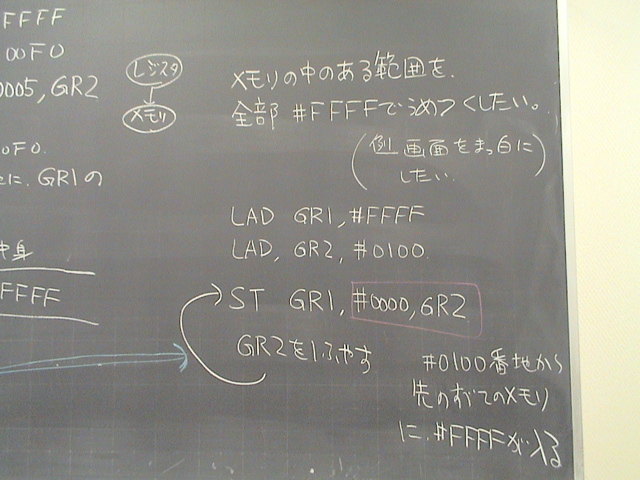 FFFF
00F0
0005, GR2
00F0.
に. GR1の
中身
FFFF
レジスタ
メモリ
メモリの中のある範囲を.
全部 #FFFFでうめつくしたい。
(例 画面をまっ白に
したい.)
LAD GR1, #FFFF
LAD, GR2, #0100.
ST GR1, #0000, GR2
GR2を1ふやす
#0100番地から
先のすべてのメモリ
に. #FFFFが入る